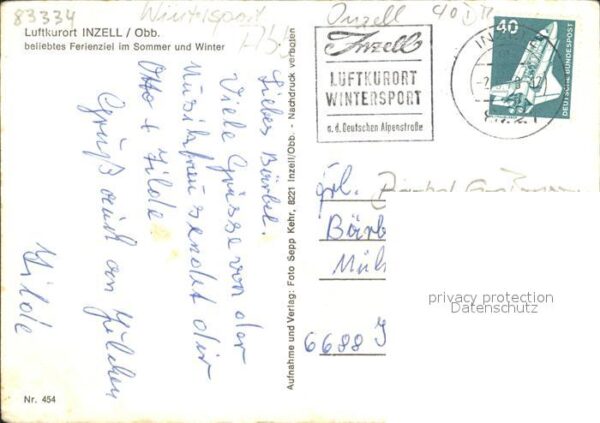 83334
Wintersport
Inzell
40
Luftkurort INZELL / Obb.
beliebtes Ferienziel im Sommer und Winter
Liebes Bärbel.
Viele Grüsse von der
Musikfreu sendet dir
Otto + Hilde
Gruß auch an
Hilde
Nr. 454
Aufnahme und Verlag: Foto Sepp Kehr, 8221 Inzell/Obb. - Nachdruck verboten
Inzell
LUFTKURORT
WINTERSPORT
a. d. Deutschen Alpenstraße
40
DEUTSCHE BUNDESPOST
Frl.
Bärb
Müh
6688 I
privacy protection
Datenschutz